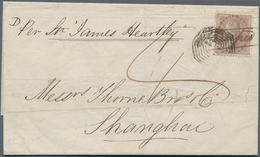 D Per Str "James Hartley"
4
Messrs Thorne Bros & Co
Shanghai